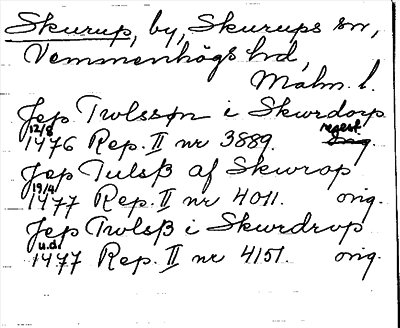 Skurup, by, Skurups sn,
Vemmenhögs hd,
Malm. l.
Jep Twlssøn i Skwrdorp
12/8 regest
1476 Rep. II nr 3889. orig.
Jep Tulsß af Skurop
19/4
1477 Rep. II nr 4011. orig.
Jep Twlsß i Skwrdrup
u.d.
1477 Rep. II nr 4151. orig.